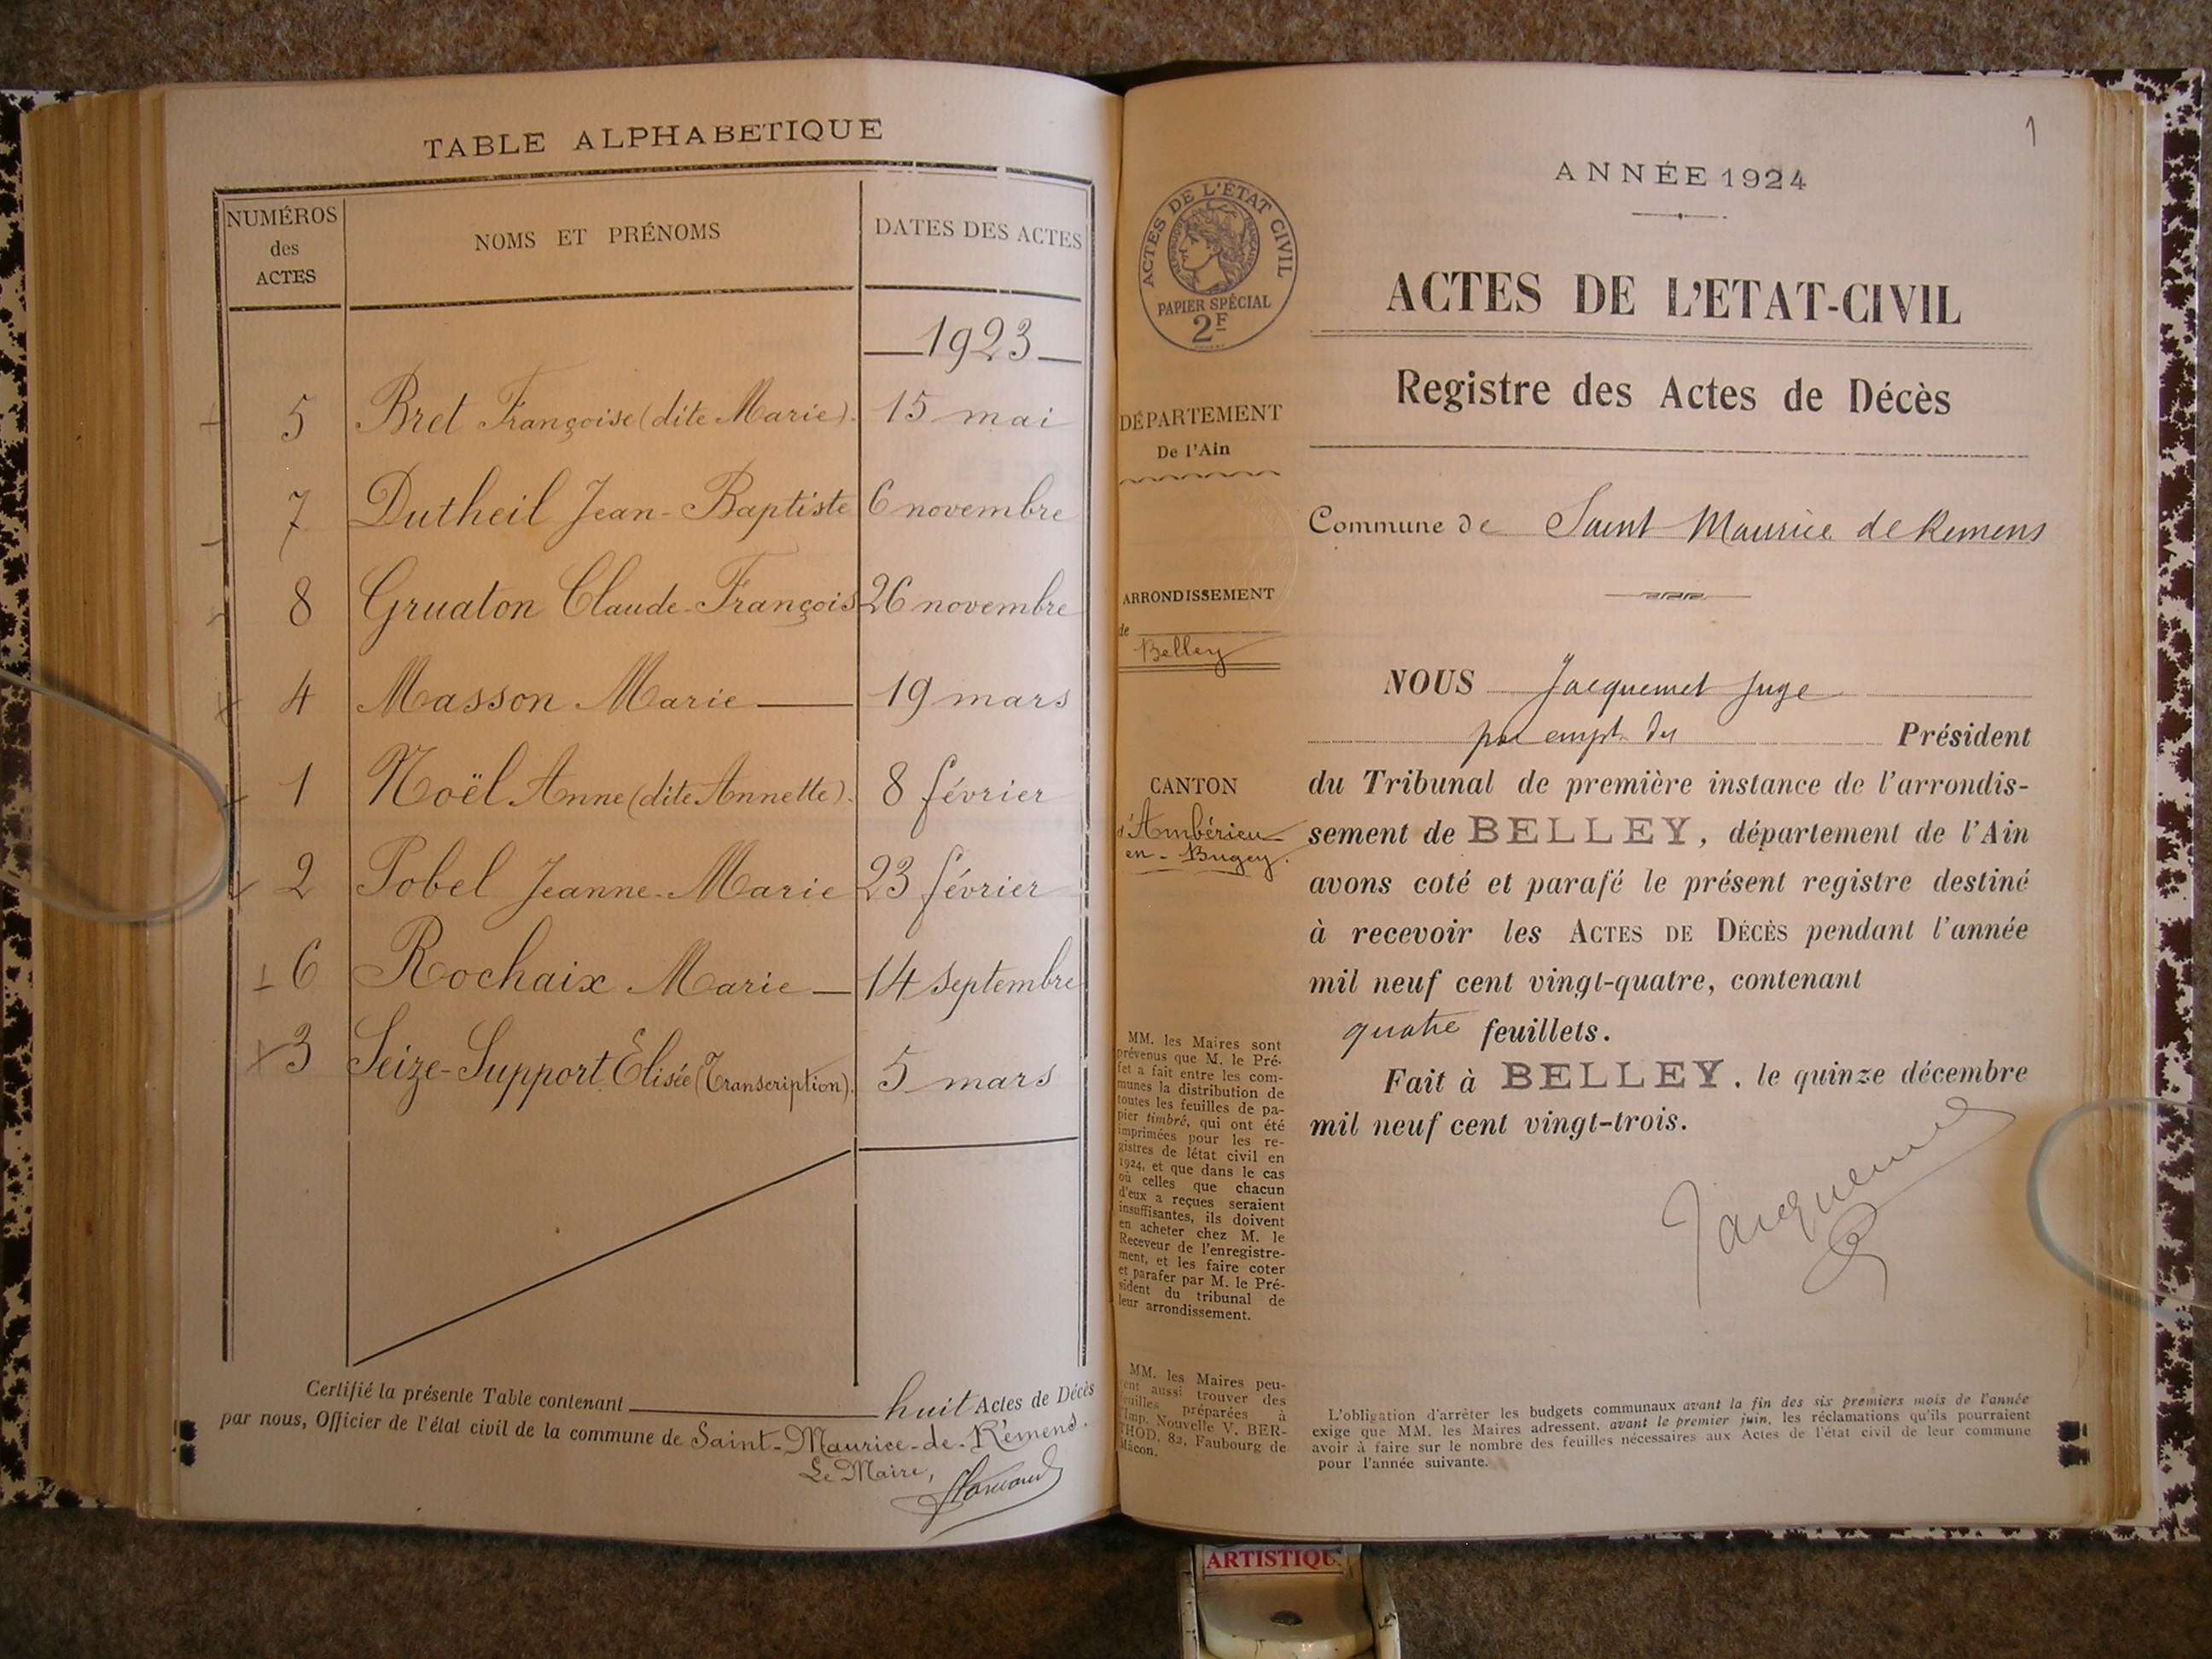 TABLE ALPHABETIQUE
NUMÉROS des ACTES
NOMS ET PRÉNOMS
DATES DES ACTES
1923
5 Bret Françoise (dite Marie). 15 mai
7 Dutheil Jean-Baptiste 6 novembre
8 Gruaton Claude-François 26 novembre
4 Masson Marie 19 mars
1 Noël Anne (dite Annette). 8 février
2 Pobel Jeanne-Marie 23 février
6 Rochaix Marie 14 septembre
3 Seize-Support Elisée (Transcription). 5 mars
Certifié la présente Table contenant huit Actes de Décès
par nous, Officier de l'état civil de la commune de Saint-Maurice-de-Rémens.
Le Maire,
1
ANNÉE 1924
ACTES DE L'ÉTAT CIVIL
RÉPUBLIQUE FRANÇAISE
PAPIER SPÉCIAL
2F
ACTES DE L'ETAT-CIVIL
Registre des Actes de Décès
DÉPARTEMENT
De l'Ain
Commune de Saint Maurice de Remens
ARRONDISSEMENT
de
Belley
CANTON
d'Ambérieu
en-Bugey.
NOUS Jacquemet Juge
par empt. du Président
du Tribunal de première instance de l'arrondis-
sement de BELLEY, département de l'Ain
avons coté et parafé le présent registre destiné
à recevoir les ACTES DE DÉCÈS pendant l'année
mil neuf cent vingt-quatre, contenant
quatre feuillets.
Fait à BELLEY, le quinze décembre
mil neuf cent vingt-trois.
Jacquemet
MM. les Maires sont
prévenus que M. le Pré-
fet a fait entre les com-
munes la distribution de
toutes les feuilles de pa-
pier timbré, qui ont été
imprimées pour les re-
gistres de létat civil en
1924, et que dans le cas
où celles que chacun
d'eux a reçues seraient
insuffisantes, ils doivent
en acheter chez M. le
Receveur de l'enregistre-
ment, et les faire coter
et parafer par M. le Pré-
sident du tribunal de
leur arrondissement.
MM. les Maires peu-
vent aussi trouver des
feuilles préparées à
l'Imp. Nouvelle V. BER-
THOD, 82, Faubourg de
Mâcon.
L'obligation d'arrêter les budgets communaux avant la fin des six premiers mois de l'année
exige que MM. les Maires adressent, avant le premier juin, les réclamations qu'ils pourraient
avoir à faire sur le nombre des feuilles nécessaires aux Actes de l'état civil de leur commune
pour l'année suivante.
ARTISTIQU